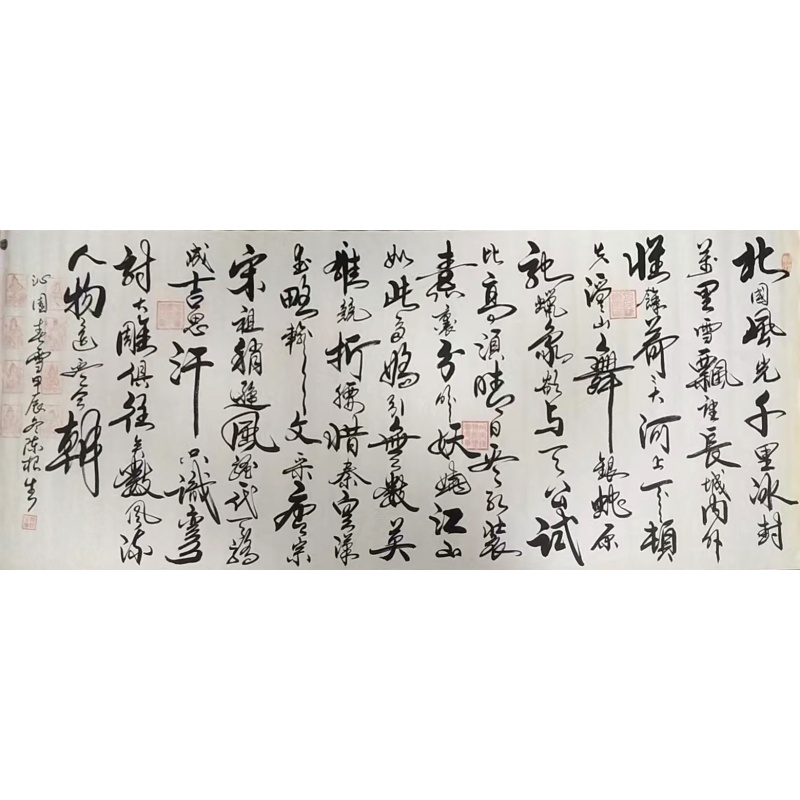 北國風光千里冰封
萬里雪飄望長城内外
惟餘莽〻大河上下頓
失滔〻山舞銀蛇原
馳蠟象欲与天公試
比高須晴日看红装
素裹分外妖嬈江山
如此多嬌引無數英
雄競折腰惜秦皇漢
武略輸文采唐宗
宋祖稍遜風騷一代天驕
成吉思汗只識彎弓
射大雕俱往矣數風流
人物還看今朝
沁園春雪甲辰冬陳根生